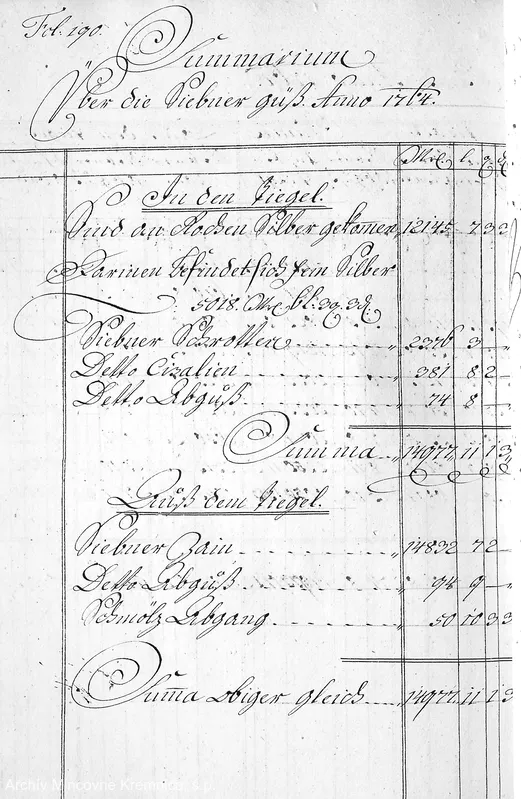 Fol. 190.
Summarium
Über die Siebner güß. Anno 1764.
Mrc. l. q. d.
In den Tiegel.
Sind an Rochen Silber gekomen, 12145 7 3 3
Darinen befindet sich fein Silber
5018. Mrc. 6l. 3q. 3d.
Siebner Schrotten „ 2376 3 —
Detto Cizalien „ 381 8 2 —
Detto Abguß „ 74 8 —
Summa „ 14977. 11 1 3
Auß dem Tiegel.
Siebner Zain „ 14832 7 2 —
Detto Abguß „ 94 9 —
Schmölz Abgang „ 50 10 3 3
Summa obiger gleich „ 14977. 11 1 3
Archív Mincovne Kremnica, š.p.